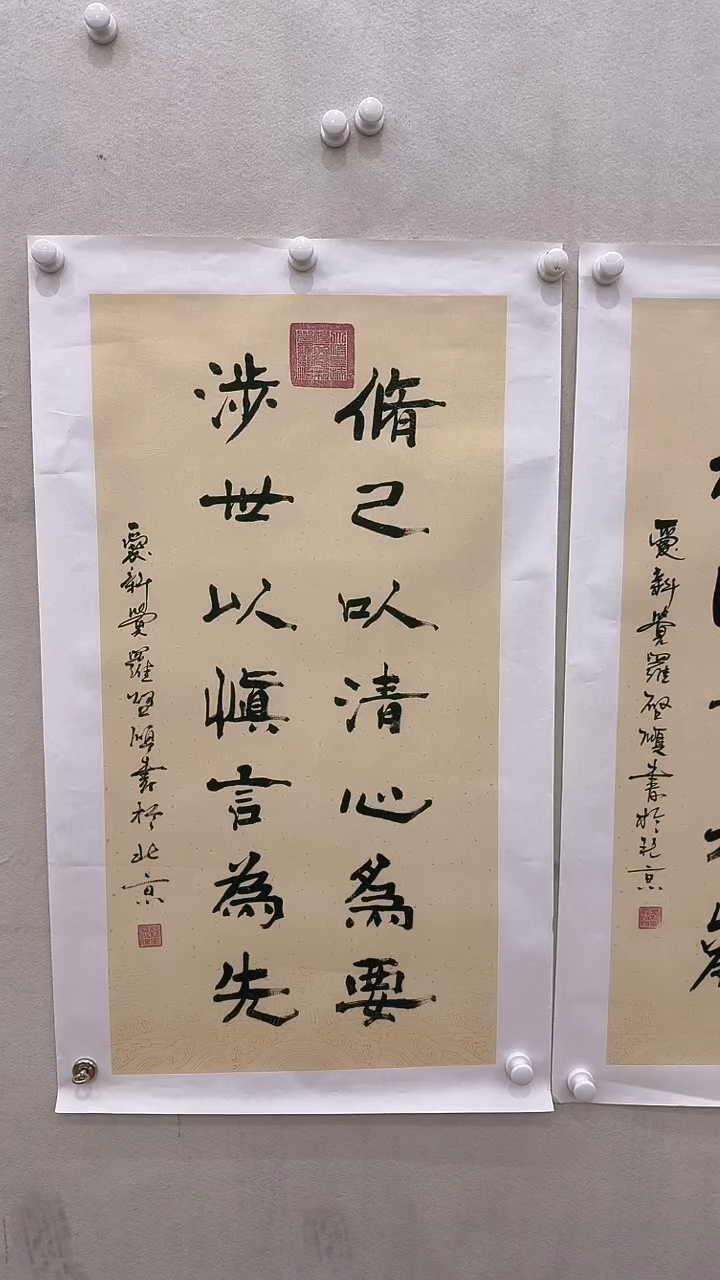 脩己以清心為要
涉世以慎言為先
愛新覺羅啓頎書於北京
愛新覺羅啓頎書於北京